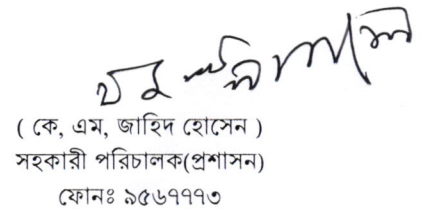 ( কে, এম, জাহিদ হোসেন )
সহকারী পরিচালক(প্রশাসন)
ফোনঃ ৯৫৬৭৭৭৩